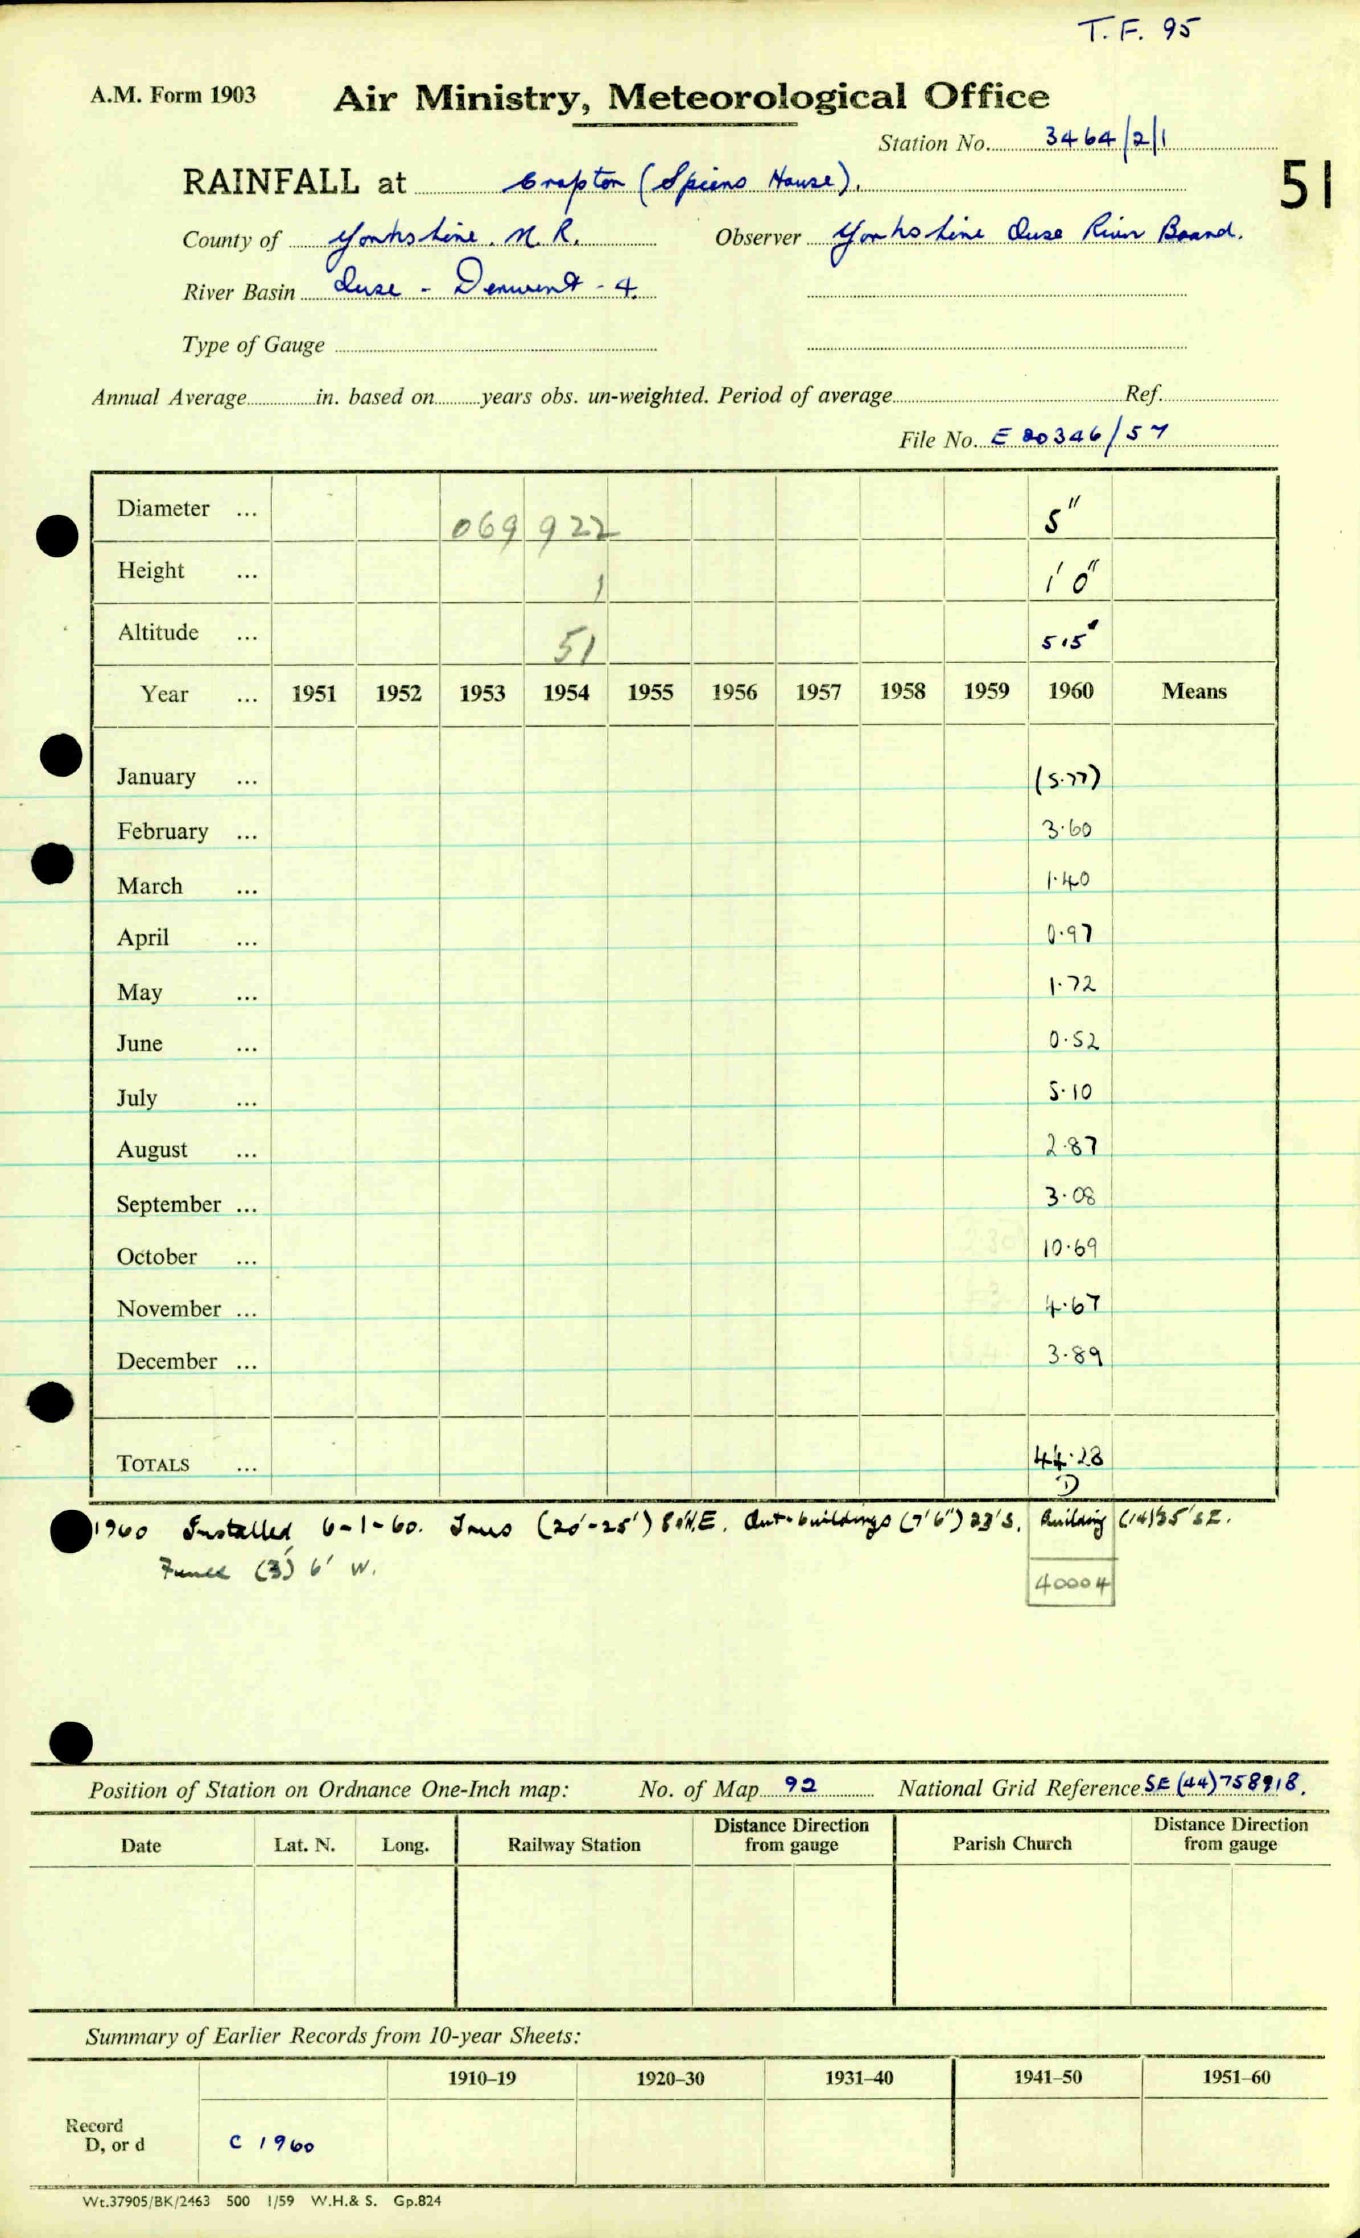 T.F. 95
A.M. Form 1903 Air Ministry, Meteorological Office
Station No. 3464/2/1
51
RAINFALL at Cropton (Spiers House).
County of Yorkshire. N.R. Observer Yorkshire Ouse River Board.
River Basin Ouse - Derwent - 4.
Type of Gauge
Annual Average in. based on years obs. un-weighted. Period of average Ref.
File No. E 20346/57
Diameter ... 069 922 5"
Height ... 1 1' 0"
Altitude ... 51 515'
Year ... 1951 1952 1953 1954 1955 1956 1957 1958 1959 1960 Means
January ... (5.77)
February ... 3.60
March ... 1.40
April ... 0.97
May ... 1.72
June ... 0.52
July ... 5.10
August ... 2.87
September ... 3.08
October ... 10.69
November ... 4.67
December ... 3.89
TOTALS ... 44.28
D
1960 Installed 6-1-60. Trees (20'-25') N.E. Out-buildings (7'6") 23'S. Building (14') 35' S.E.
Fence (3') 6' W.
40004
Position of Station on Ordnance One-Inch map: No. of Map 92 National Grid Reference SE (44) 758918.
Date Lat. N. Long. Railway Station Distance Direction from gauge Parish Church Distance Direction from gauge
Summary of Earlier Records from 10-year Sheets:
1910-19 1920-30 1931-40 1941-50 1951-60
Record
D, or d C 1960
Wt.37905/BK/2463 500 1/59 W.H.& S. Gp.824